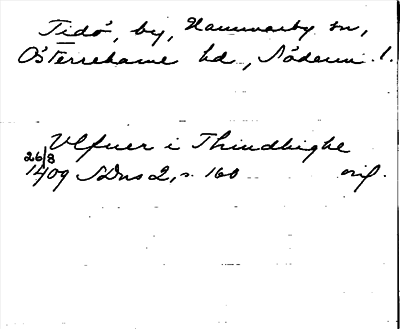 Tidö, by, Hammarby sn,
Österrekarne hd, Söderm. l.
Ulfuer i Thindhighe
26/8
1409 SDns 2, s. 160 orig.